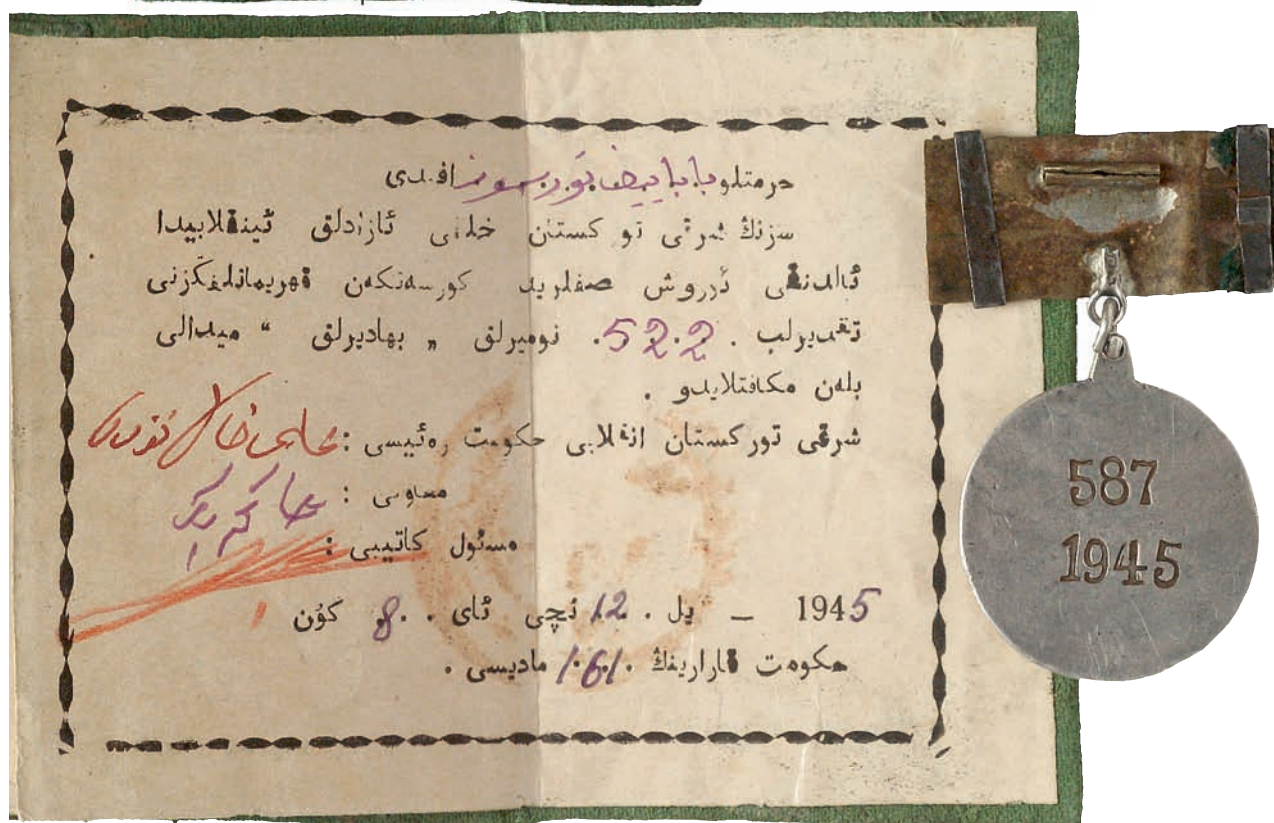 حرمتلو باباييف تورسون افندى
سزنڭ شرقى توركستان خلقى ئازادلق ئينقلابيدا
ئالدىنقى ئۇروش صفلريد كورسەتكەن قهريمانلغڭزنى
تقديرلب . 522 . نوميرلق „ بهاديرلق “ ميدالى
بلەن مكافتلايدو .
شرقى توركستان انقلابى حكومت رەئيسى : علىخان تۆرە
معاونى : حاكم بك
مسئول كاتيبى :
1945 – يل . 12 نچى ئاى . 8 . كۈن
حكومت قارارينڭ . 161 ماديسى .
587
1945